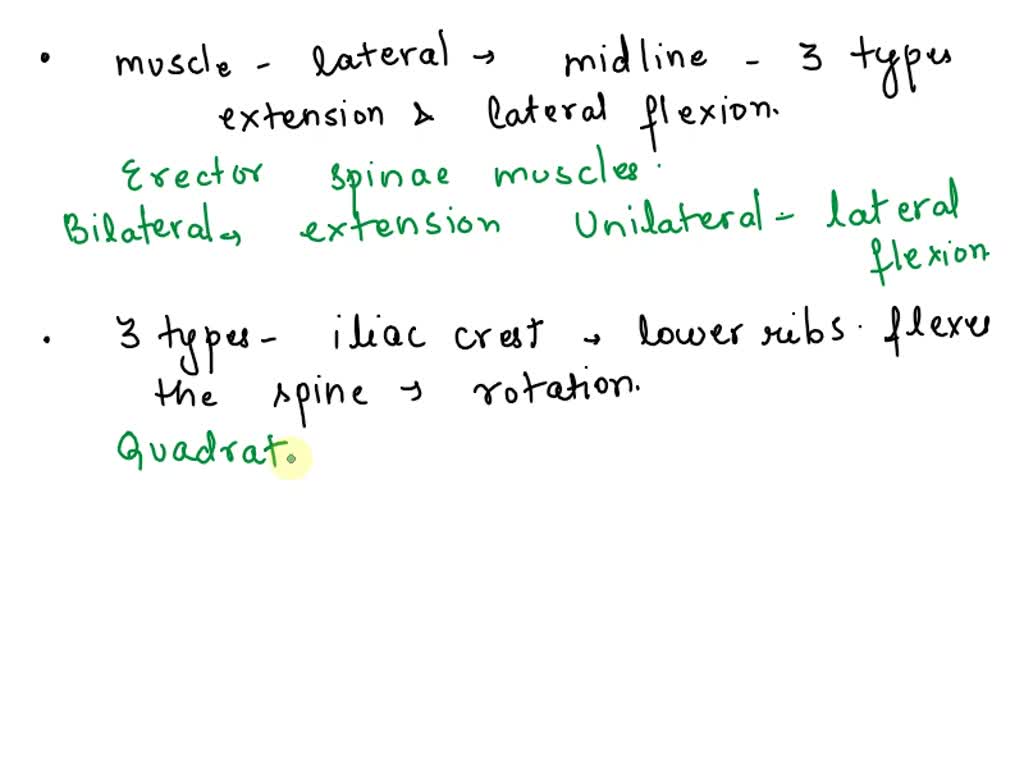 • muscle - lateral → midline - 3 types
extension & lateral flexion.
Erector spinae muscles.
Bilateral → extension Unilateral - lateral
flexion
• 3 types - iliac crest → lower ribs. flexes
the spine → rotation.
Quadrat